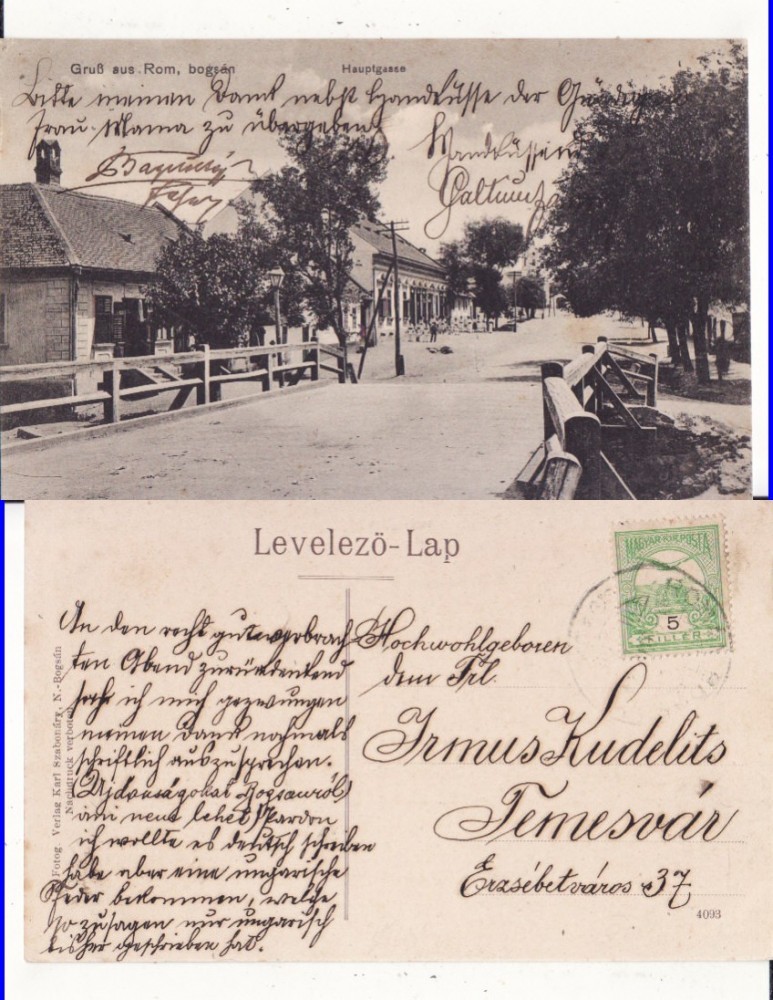 Gruß aus Rom, bogsán
Hauptgasse
Bitte meinen Dank nebst Handküsse der Gnädigen
Frau Mama zu übergeben
Levelezö-Lap
MAGYAR KIR. POSTA
5
FILLER
An den recht gut verbrach
ten Abend zurückdenkend
sehe ich mich gezwungen
meinen Dank nochmals
schriftlich auszusprechen.
(Ujdonságokat Bogsanról)
ami nem lehet) Pardon
ich wollte es deutsch schreiben
habe aber eine ungarische
Feder bekommen, welche
so zusagen nur ungarisch
bisher geschrieben hat.
Hochwohlgeboren
dem Frl.
Irmus Kudelits
Temesvár
Erzsébetváros 37
4093
Fotog. Verlag Karl Szabonáry, N.-Bogsán
Nachdruck verboten